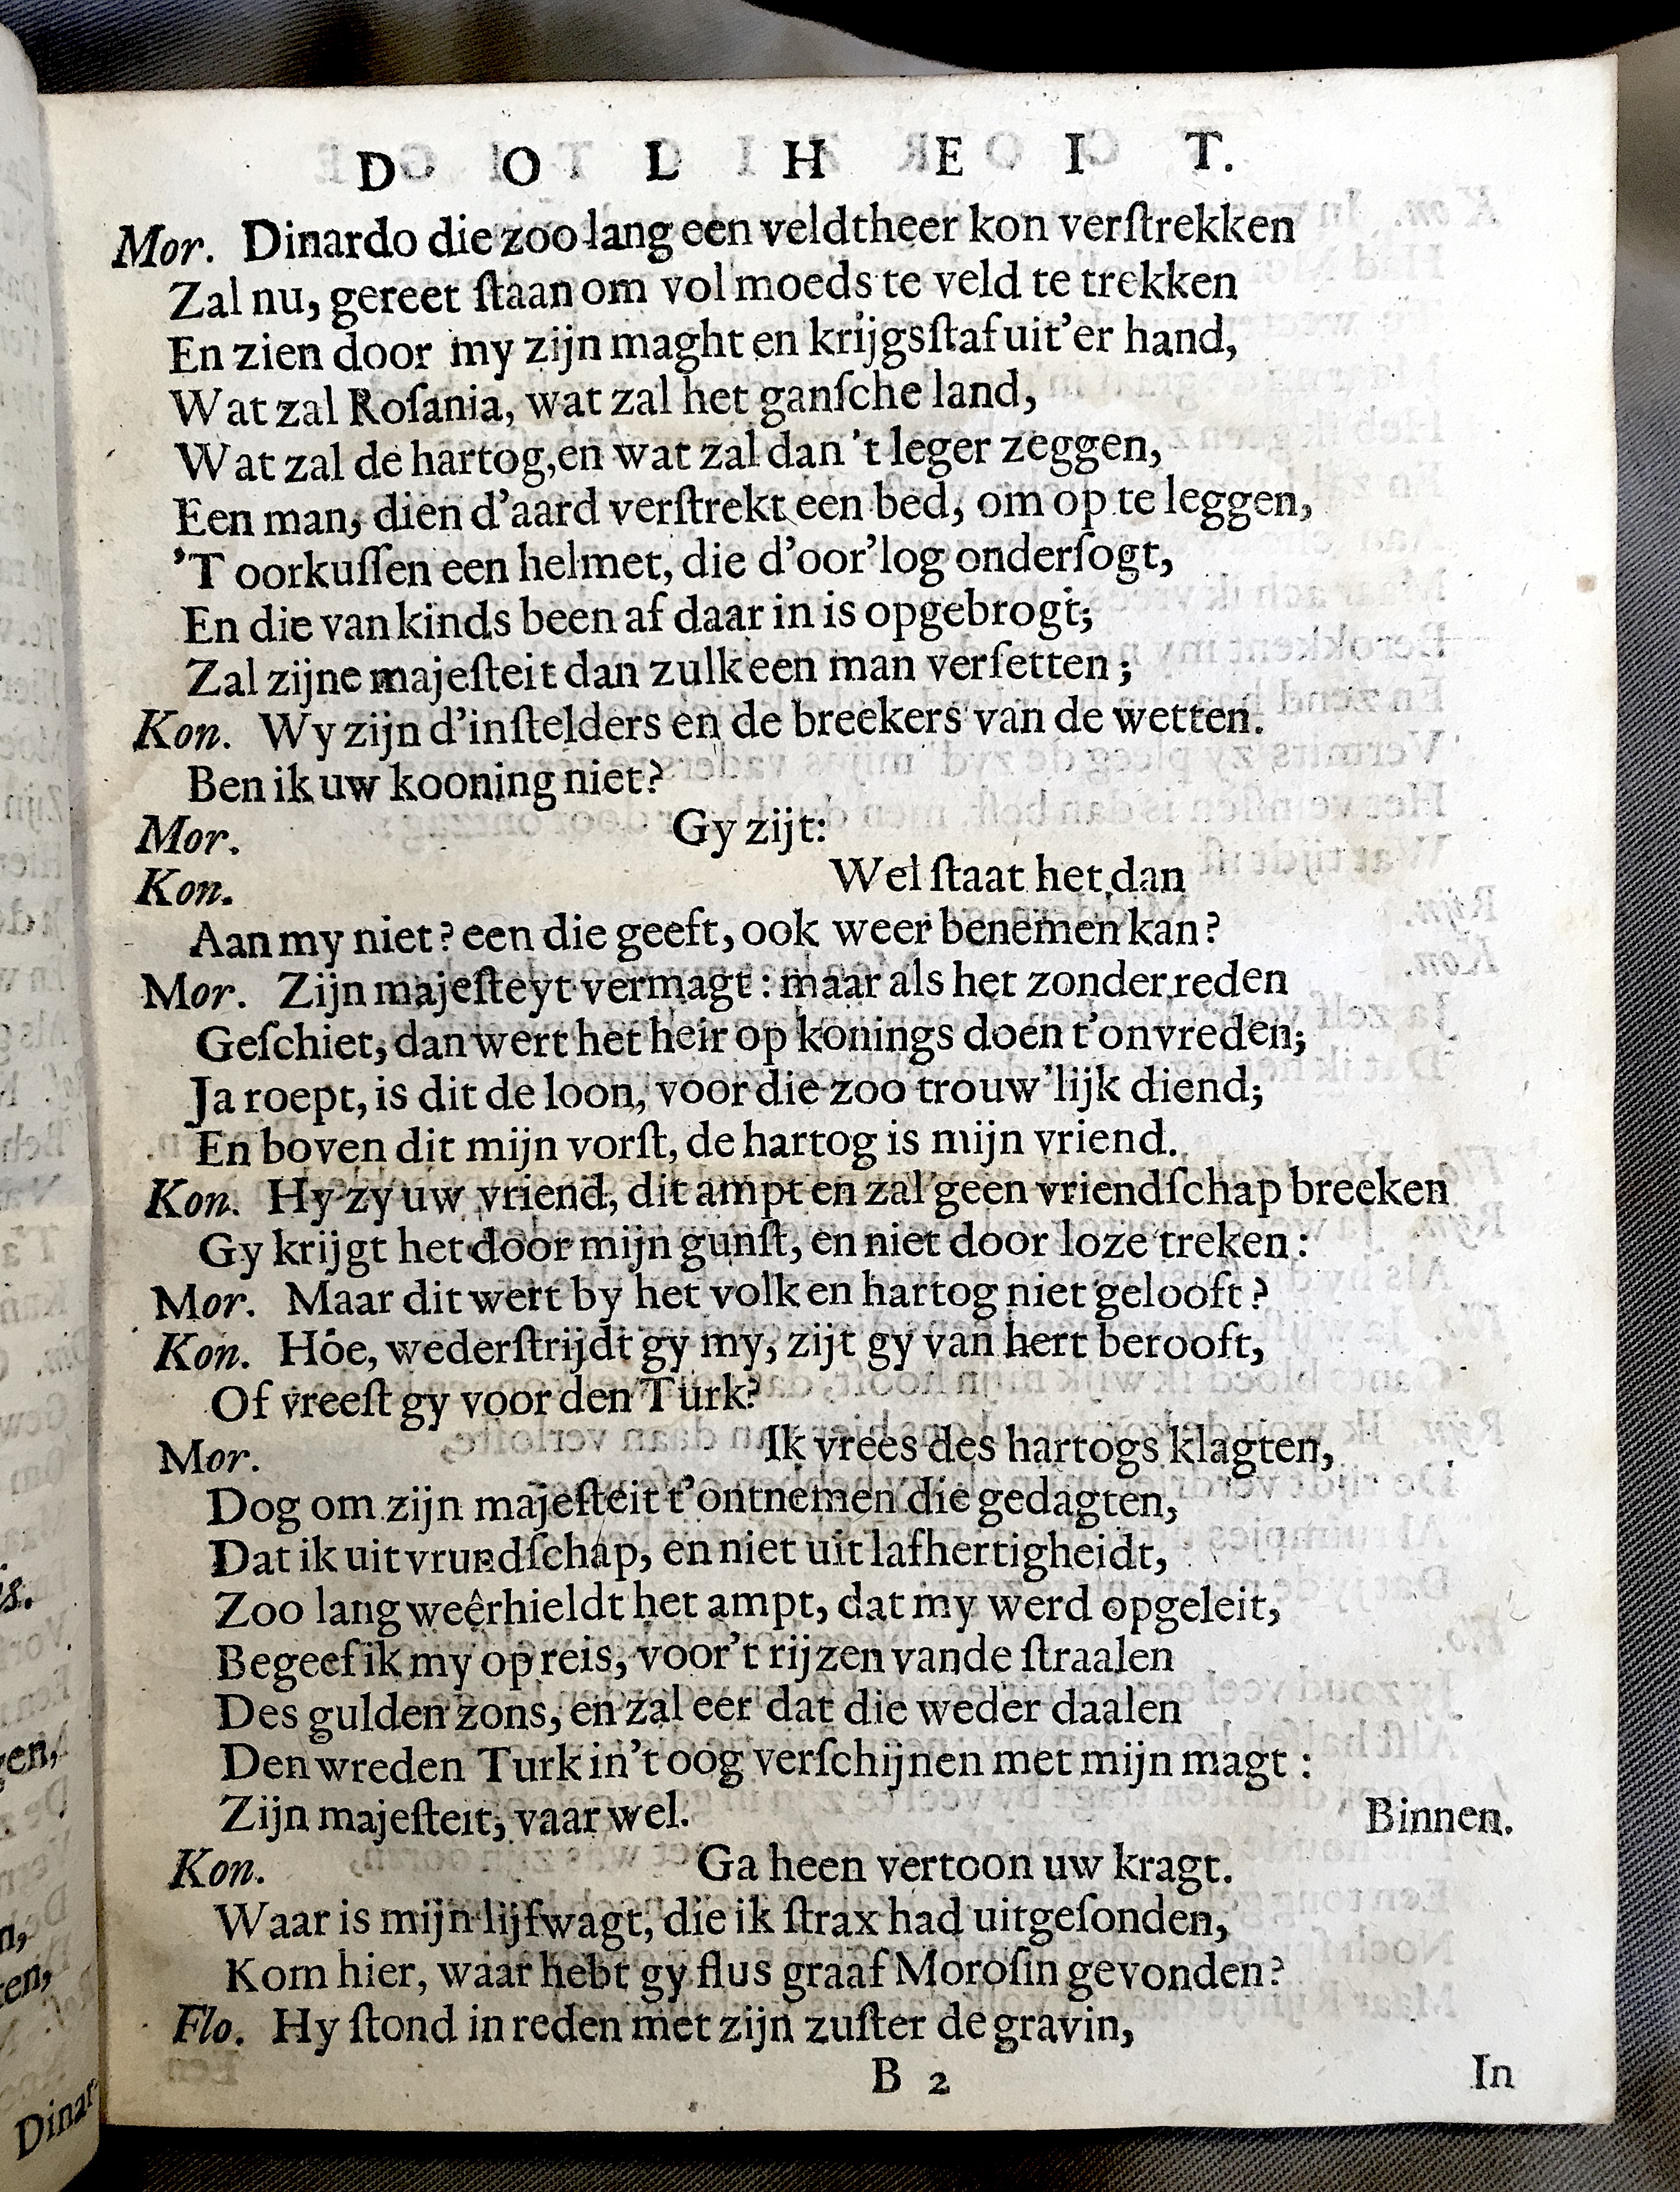 D O L H E I T.
Mor. Dinardo die zoo lang een veldtheer kon verſtrekken
Zal nu, gereet ſtaan om vol moeds te veld te trekken
En zien door my zijn maght en krijgsſtaf uit'er hand,
Wat zal Roſania, wat zal het ganſche land,
Wat zal de hartog, en wat zal dan 't leger zeggen,
Een man, dien d'aard verſtrekt een bed, om op te leggen,
'T oorkuſſen een helmet, die d'oor'log onderſogt,
En die van kinds been af daar in is opgebrogt;
Zal zijne majeſteit dan zulk een man verſetten;
Kon. Wy zijn d'inſtelders en de breekers van de wetten.
Ben ik uw kooning niet?
Mor. Gy zijt:
Kon. Wel ſtaat het dan
Aan my niet? een die geeft, ook weer benemen kan?
Mor. Zijn majeſteyt vermagt: maar als het zonder reden
Geſchiet, dan wert het heir op konings doen t'onvreden;
Ja roept, is dit de loon, voor die zoo trouw'lijk diend;
En boven dit mijn vorſt, de hartog is mijn vriend.
Kon. Hy zy uw vriend, dit ampt en zal geen vriendſchap breeken
Gy krijgt het door mijn gunſt, en niet door loze treken:
Mor. Maar dit wert by het volk en hartog niet gelooft?
Kon. Hoe, wederſtrijdt gy my, zijt gy van hert berooft,
Of vreeſt gy voor den Turk?
Mor. Ik vrees des hartogs klagten,
Dog om zijn majeſteit t'ontnemen die gedagten,
Dat ik uit vrundſchap, en niet uit lafhertigheidt,
Zoo lang weêrhieldt het ampt, dat my werd opgeleit,
Begeef ik my op reis, voor't rijzen vande ſtraalen
Des gulden zons, en zal eer dat die weder daalen
Den wreden Turk in't oog verſchijnen met mijn magt:
Zijn majeſteit, vaar wel. Binnen.
Kon. Ga heen vertoon uw kragt.
Waar is mijn lijfwagt, die ik ſtrax had uitgeſonden,
Kom hier, waar hebt gy flus graaf Moroſin gevonden?
Flo. Hy ſtond in reden met zijn zuſter de gravin,
B 2 In